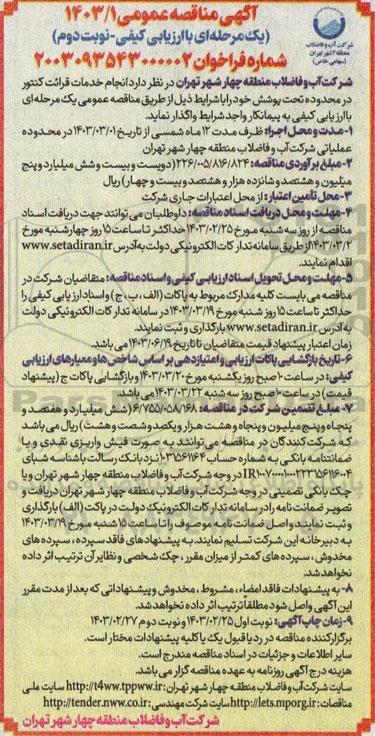 آگهی مناقصه عمومی ۱۴۰۳/۱
(یک مرحله‌ای با ارزیابی کیفی-نوبت دوم)
شماره فراخوان ۲۰۰۳۰۹۳۵۴۳۰۰۰۰۰۲
شرکت آب و فاضلاب
منطقه ۴ شهر تهران
(سهامی خاص)
شرکت آب و فاضلاب منطقه چهار شهر تهران در نظر دارد انجام خدمات قرائت کنتور
در محدوده تحت پوشش خود را با شرایط ذیل از طریق مناقصه عمومی یک مرحله‌ای
با ارزیابی کیفی به پیمانکار واجد شرایط واگذار نماید.
۱-مدت و محل اجرا: ظرف مدت ۱۲ ماه شمسی از تاریخ ۱۴۰۳/۰۳/۰۱ در محدوده
عملیاتی شرکت آب و فاضلاب منطقه چهار شهر تهران
۲-مبلغ برآوردی مناقصه: ۲۲۶/۰۰۵/۸۱۶/۸۲۴ (دویست و بیست و شش میلیارد و پنج
میلیون و هشتصد و شانزده هزار و هشتصد و بیست و چهار) ریال
۳-محل تامین اعتبار: از محل اعتبارات جاری شرکت
۴-مهلت و محل دریافت اسناد مناقصه: داوطلبان می‌توانند جهت دریافت اسناد
مناقصه از روز سه شنبه مورخ ۱۴۰۳/۰۲/۲۵ حداکثر تا ساعت ۱۵ روز چهارشنبه مورخ
۱۴۰۳/۰۳/۲ از طریق سامانه تدارکات الکترونیکی دولت به آدرس www.setadiran.ir
اقدام نمایند.
۵-مهلت و محل تحویل اسناد ارزیابی کیفی و اسناد مناقصه: متقاضیان شرکت در
مناقصه می‌بایست کلیه مدارک مربوط به پاکات (الف، ب، ج) و اسناد ارزیابی کیفی را
حداکثر تا ساعت ۱۵ روز شنبه مورخ ۱۴۰۳/۰۳/۱۹ در سامانه تدارکات الکترونیکی دولت
به آدرس www.setadiran.ir بارگذاری و ثبت نمایند.
زمان اعتبار پیشنهاد قیمت متقاضیان تا تاریخ ۱۴۰۳/۰۶/۱۹ می‌باشد.
۶-تاریخ بازگشایی پاکات ارزیابی و امتیازدهی بر اساس شاخص‌ها و معیارهای ارزیابی
کیفی: در ساعت ۱۰ صبح روز یکشنبه مورخ ۱۴۰۳/۰۳/۲۰ و بازگشایی پاکات ج (پیشنهاد
قیمت) در ساعت ۱۰ صبح روز سه شنبه ۱۴۰۳/۰۳/۲۲ می‌باشد.
۷-مبلغ تضمین شرکت در مناقصه: ۶/۷۵۵/۰۵۸/۱۶۸ (شش میلیارد و هفتصد و
پنجاه و پنج میلیون و پنجاه و هشت هزار و یکصد و شصت و هشت) ریال می‌باشد
که شرکت کنندگان در مناقصه می‌توانند به صورت فیش واریزی نقدی و یا
ضمانتنامه بانکی به شماره حساب ۱۰۳۵۶۱۱۶۴ نزد بانک رسالت با شناسه شبای
در وجه شرکت آب و فاضلاب منطقه چهار شهر تهران و یا
چک بانکی تضمینی در وجه شرکت آب و فاضلاب منطقه چهار شهر تهران دریافت و
تصویر ضمانت نامه را در سامانه تدارکات الکترونیک دولت در پاکت (الف) بارگذاری
و ثبت نمایند و اصل ضمانت نامه موصوف را تا ساعت ۱۵ شنبه مورخ ۱۴۰۳/۰۳/۱۹
به دبیرخانه این شرکت تسلیم نمایند. به پیشنهادهای فاقد سپرده، سپرده‌های
مخدوش، سپرده‌های کمتر از میزان مقرر، چک شخصی و نظایر آن ترتیب اثر داده
نخواهد شد.
۸- به پیشنهادات فاقد امضاء، مشروط، مخدوش و پیشنهاداتی که بعد از مدت مقرر
این آگهی واصل شود مطلقا ترتیب اثر داده نخواهد شد.
۹-زمان چاپ آگهی: نوبت اول ۱۴۰۳/۰۲/۲۵ و نوبت دوم ۱۴۰۳/۰۲/۲۷
برگزارکننده مناقصه در رد یا قبول یک یا کلیه پیشنهادات مختار است.
سایر اطلاعات و جزئیات در اسناد مناقصه مندرج است.
هزینه درج آگهی روزنامه به عهده مناقصه گزار می‌باشد.
سایت شرکت آب و فاضلاب منطقه چهار شهر تهران: http://t4ww.tppww.ir سایت ملی
مناقصات: http://iets.mporg.ir سایت شرکت مهندسی: http://tender.nww.co.ir
شرکت آب و فاضلاب منطقه چهار شهر تهران